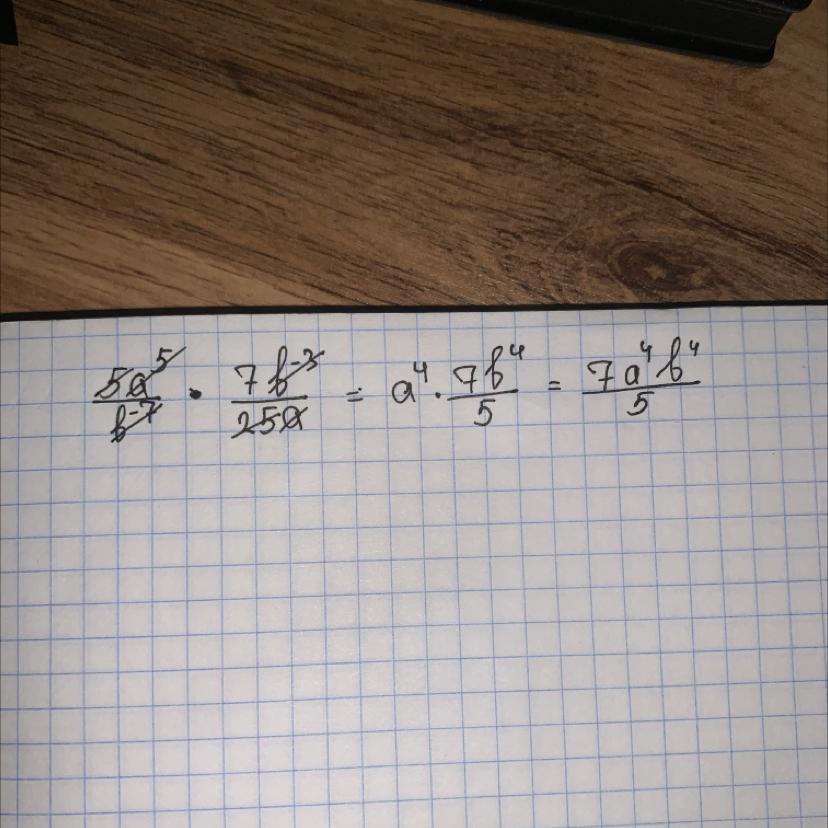 5a⁵/b⁻⁷ · 7b⁻³/25a = a⁴ · 7b⁴/5 = 7a⁴b⁴/5